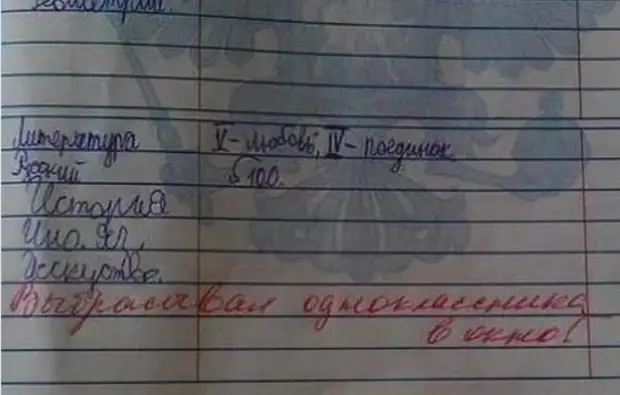 Геометрия.
Литература V - любовь, IV - поединок.
Русский § 100.
История
Ино. яз.
Исскуство.
Выбрасывал одноклассника
в окно!